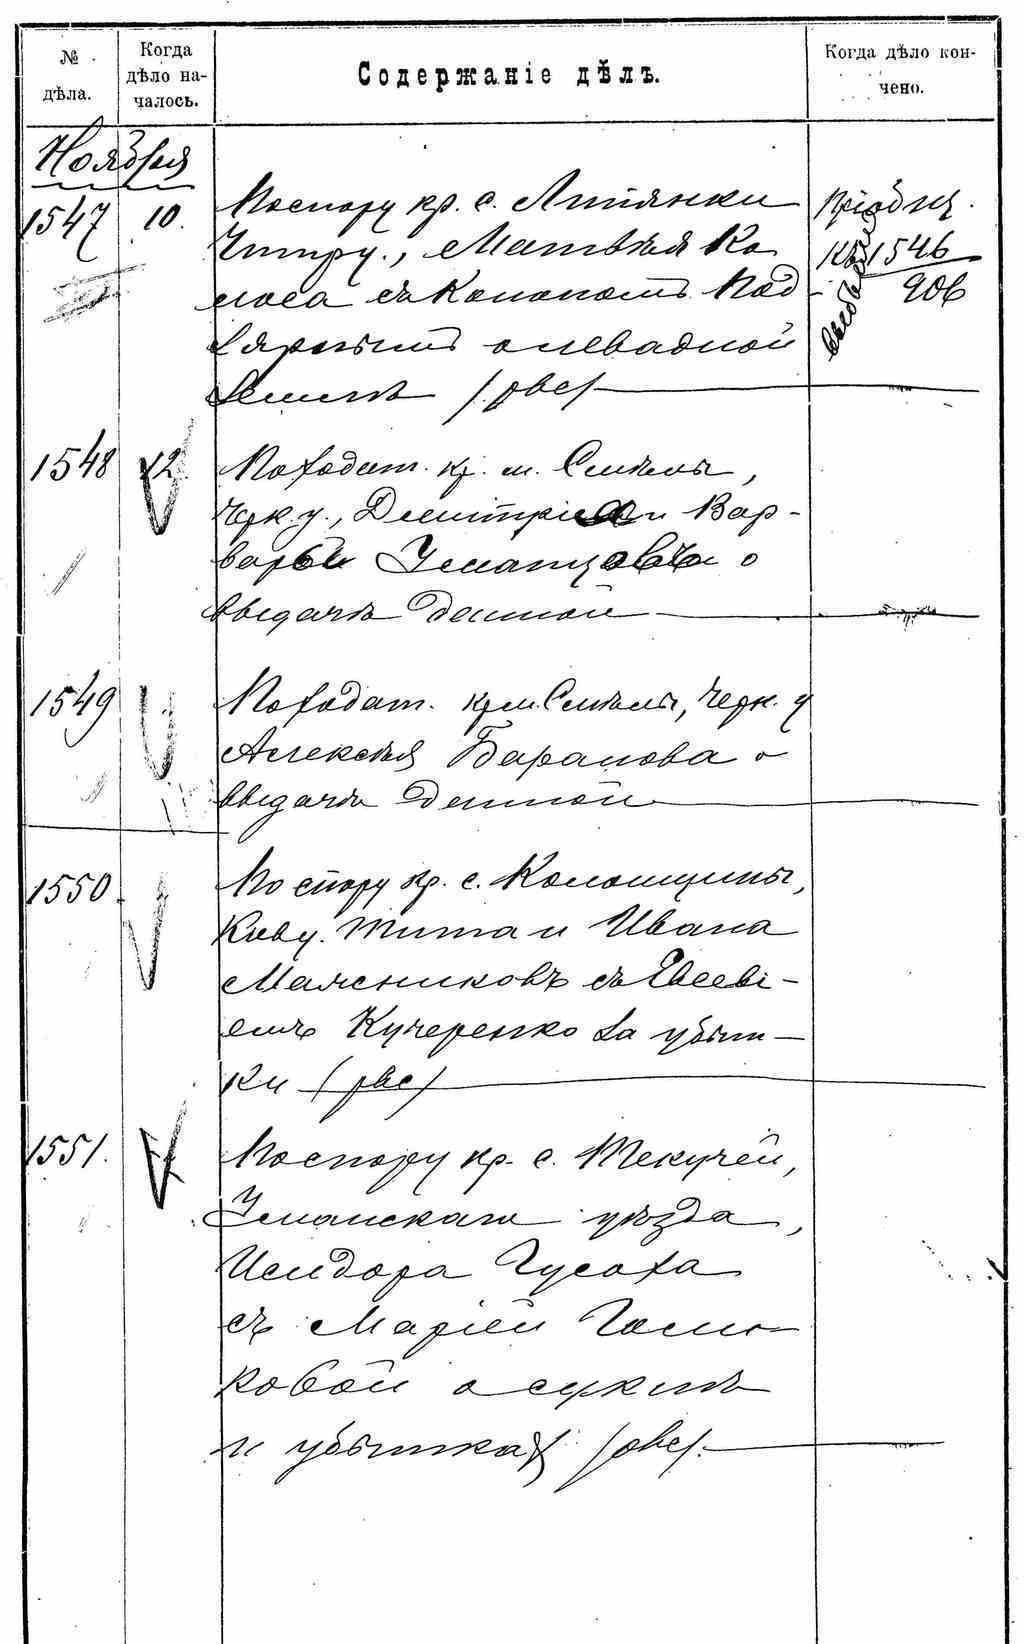 № дѣла.
Когда дѣло началось.
Содержаніе дѣлъ.
Когда дѣло кончено.
Ноября
1547 10. По спору кр. с. Литвянки
Чигир. у., Матвѣя Ко
лоса съ Кононом Под
о левадной
землѣ /рвс/
Пріобщ.
къ 1546
906
1548 12. По ходат. кр. м. Смѣлы,
Черк. у., Димитрія и Вар-
вары Уманцовыхъ о
выдачѣ данной
1549 По ходат. кр. м. Смѣлы, Черк. у
Алексѣя Баранова о
выдачѣ данной
1550 По спору кр. с. Колонщины,
Кіев у. Тита и Ивана
Мясниковъ съ Евсеві-
емъ Кучеренко за убыт-
ки /рвс/
1551. По спору кр. с. Текучей,
Уманскаго уѣзда,
Исидора Гусака
съ Маріей Голи-
ковой о сукнѣ
и убытках /рвс/.